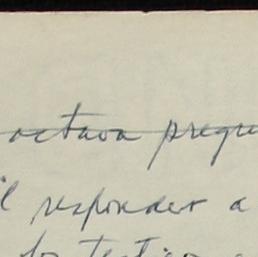 octava pregu
il responder a
los testigos